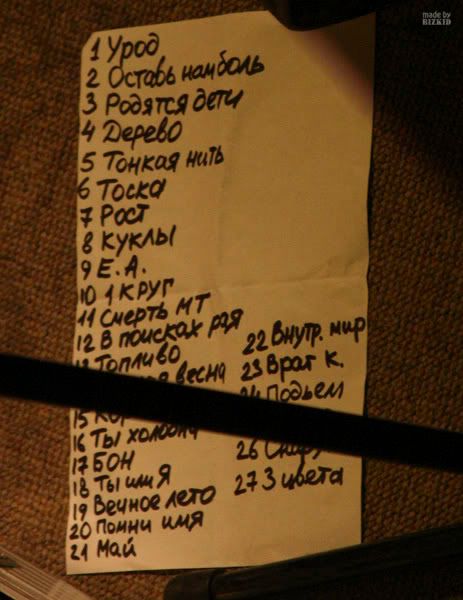 made by
BIZKID
1 Урод
2 Оставь нам боль
3 Родятся дети
4 Дерево
5 Тонкая нить
6 Тоска
7 Рост
8 Куклы
9 Е.А.
10 1 КРУГ
11 Смерть МТ
12 В поисках рая
13 Топливо
весна
15
16 Ты холодна
17 БОН
18 Ты или Я
19 Вечное лето
20 Помни имя
21 Май
22 Внутр. мир
23 Враг к.
24 Подъем
26
27 3 цвета